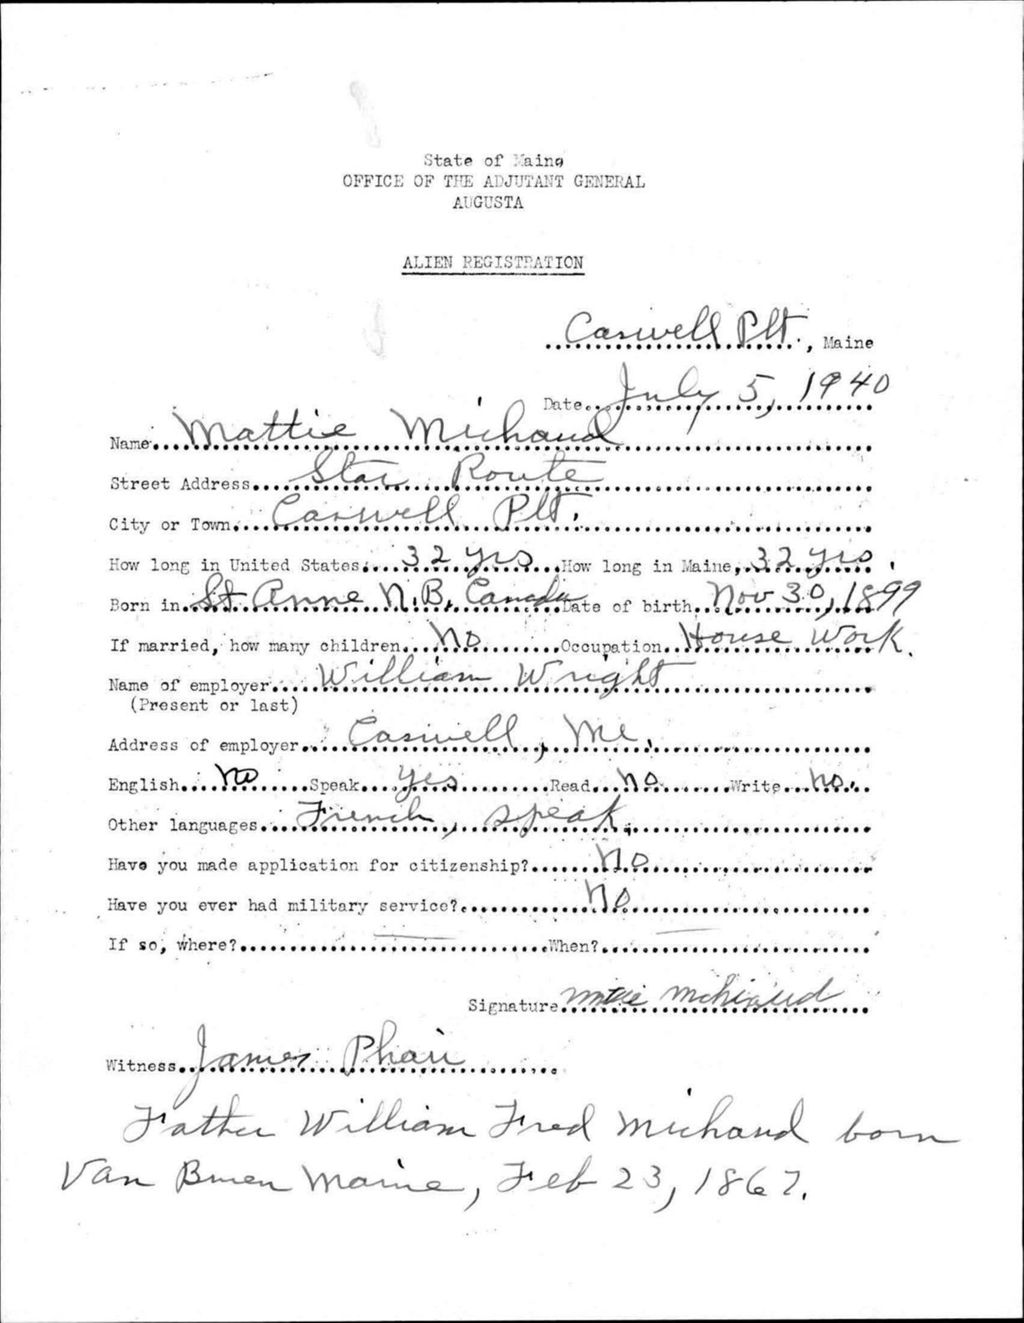 State of Maine
OFFICE OF THE ADJUTANT GENERAL
AUGUSTA
ALIEN REGISTRATION
Caswell Plt., Maine
Date July 5, 1940
Name Mattie Michaud
Street Address Star Route
City or Town Caswell Plt.
How long in United States 32 yrs How long in Maine, 32 yrs.
Born in St Anne N.B. Canada Date of birth Nov 30, 1899
If married, how many children No Occupation House Work.
Name of employer William Wright
(Present or last)
Address of employer Caswell, Me.
English No Speak yes Read No Write No.
Other languages French, speak.
Have you made application for citizenship? No
Have you ever had military service? No
If so, where? When?
Signature Mattie Michaud
Witness James Phair
Father William Fred Michaud born
Van Buren Maine, Feb 23, 1867.